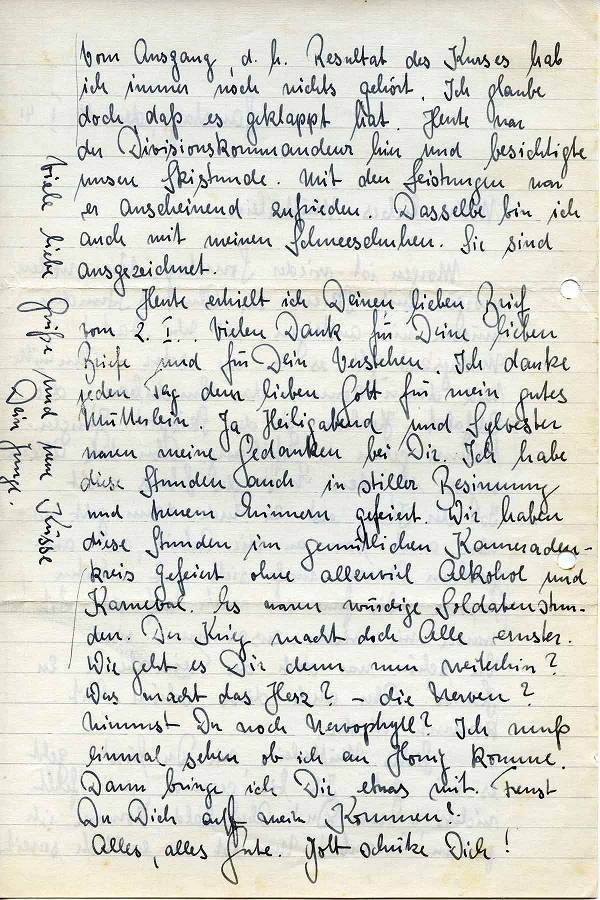 Vom Ausgang, d. h. Resultat des Kurses hab
ich immer noch nichts gehört. Ich glaube
doch daß es geklappt hat. Heute war
der Divisionskommandeur hier und besichtigte
unsere Skistunde. Mit den Leistungen war
er anscheinend zufrieden. Dasselbe bin ich
auch mit meinen Schneeschuhen. Sie sind
ausgezeichnet.
Heute erhielt ich Deinen lieben Brief
vom 2. I. Vielen Dank für Deine lieben
Briefe und für Dein Verstehen. Ich danke
jeden Tag dem lieben Gott für mein gutes
Mütterlein. Ja Heiligabend und Sylvester
waren meine Gedanken bei Dir. Ich habe
diese Stunden auch in stiller Besinnung
und treuem Erinnern gefeiert. Wir haben
diese Stunden im gemütlichen Kameraden-
kreis gefeiert ohne allzuviel Alkohol und
Karneval. Es waren würdige Soldatenstun-
den. Der Krieg macht doch Alle ernster.
Wie geht es Dir denn nun weiterhin?
Was macht das Herz? – die Nerven?
Nimmst Du noch Nervophyll? Ich muß
einmal sehen ob ich an Honig komme.
Dann bringe ich Dir etwas mit. Freust
Du Dich auf mein Kommen?
Alles, alles Gute. Gott schütze Dich!
Viele liebe Grüße und Küsse
Dein Junge.